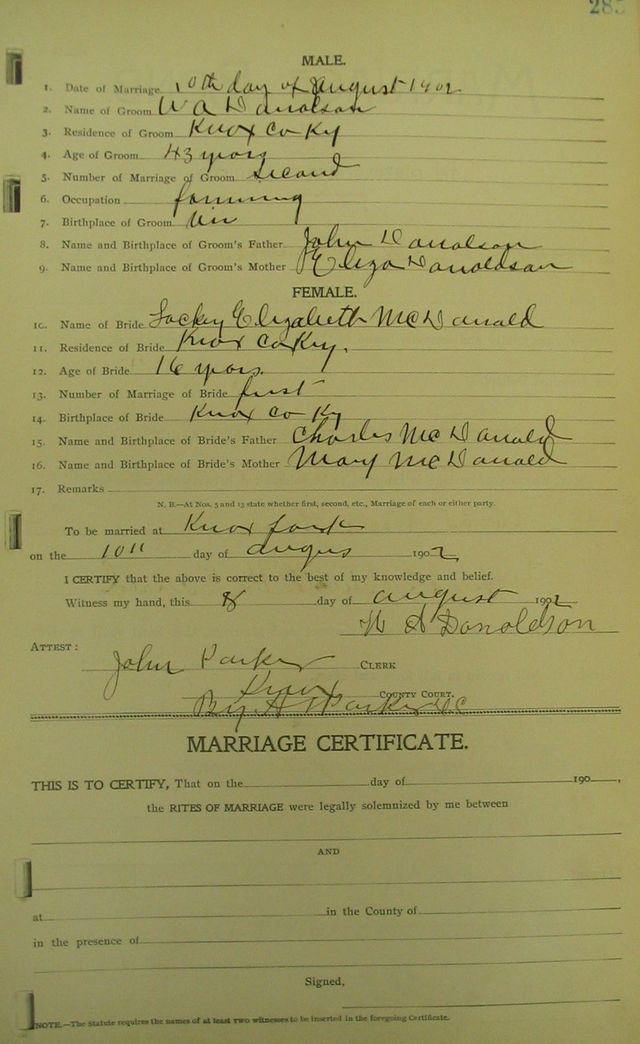 285
MALE.
1. Date of Marriage 10th day of August 1902
2. Name of Groom W A Donalson
3. Residence of Groom Knox Co Ky
4. Age of Groom 43 years
5. Number of Marriage of Groom second
6. Occupation farming
7. Birthplace of Groom
8. Name and Birthplace of Groom's Father John Donalson
9. Name and Birthplace of Groom's Mother Eliza Donaldson
FEMALE.
10. Name of Bride Elizabeth McDonald
11. Residence of Bride Knox Co Ky.
12. Age of Bride 16 years.
13. Number of Marriage of Bride first
14. Birthplace of Bride Knox Co Ky
15. Name and Birthplace of Bride's Father Charles McDonald
16. Name and Birthplace of Bride's Mother Mary McDonald
17. Remarks
N. B.—At Nos. 5 and 13 state whether first, second, etc., Marriage of each or either party.
To be married at Knox fork
on the 10" day of augus 1902
I CERTIFY that the above is correct to the best of my knowledge and belief.
Witness my hand, this 8 day of august 1902
W A Donoldson
ATTEST:
John Parker CLERK
Knox COUNTY COURT.
By Parker DC
MARRIAGE CERTIFICATE.
THIS IS TO CERTIFY, That on the day of 190 ,
the RITES OF MARRIAGE were legally solemnized by me between
AND
at in the County of
in the presence of
Signed,
NOTE.—The Statute requires the names of at least two witnesses to be inserted in the foregoing Certificate.